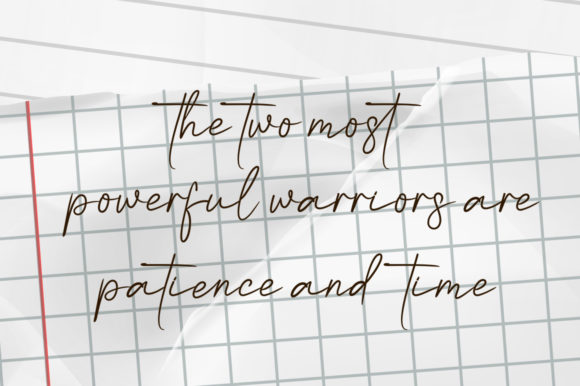 the two most
powerful warriors are
patience and time